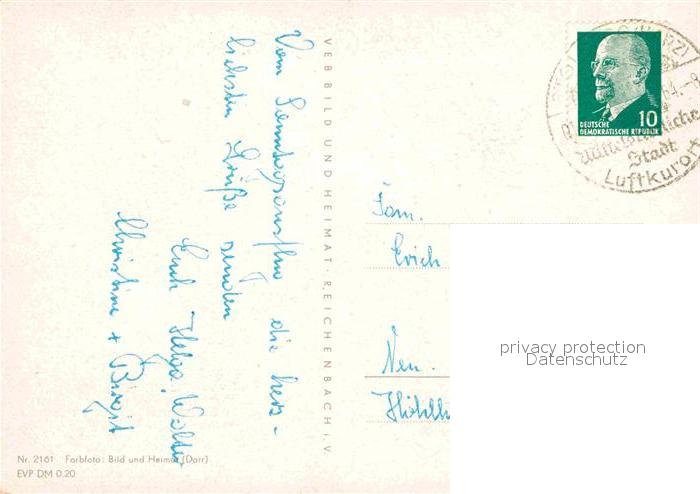 Vom Sonntagsausflug die herz-
lichsten Grüße senden
Euch Helga, Walter,
Christine + Birgit
VEB BILD UND HEIMAT · REICHENBACH i. V.
DEUTSCHE
DEMOKRATISCHE REPUBLIK
10
Stadt
Luftkurort
Fam.
Erich
Neu.
privacy protection
Datenschutz
Nr. 2161 Farbfoto: Bild und Heimat (Darr)
EVP DM 0.20